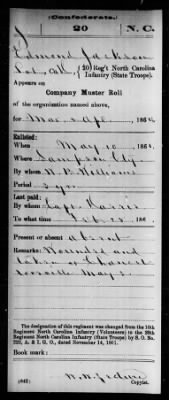 (Confederate.)
J 20 N.C.
Edmond Jackson
Pvt, Co. { 20 Reg't North Carolina
Infantry (State Troops).
Appears on
Company Muster Roll
of the organization named above,
for Mar & Apl, 186
Enlisted:
When May 10, 186
Where Sampson Cty.
By whom
Period 3 yrs
Last paid:
By whom Capt. Harris
To what time Feb 28, 186
Present or absent absent
Remarks: Wounded and
taken at Chancel
lorsville May 3.
The designation of this regiment was changed from the 10th
Regiment North Carolina Infantry (Volunteers) to the 20th
Regiment North Carolina Infantry (State Troops) by S. O. No.
A. & I. G. O., dated November 14, 1861.
Book mark:
(642)
Copyist.